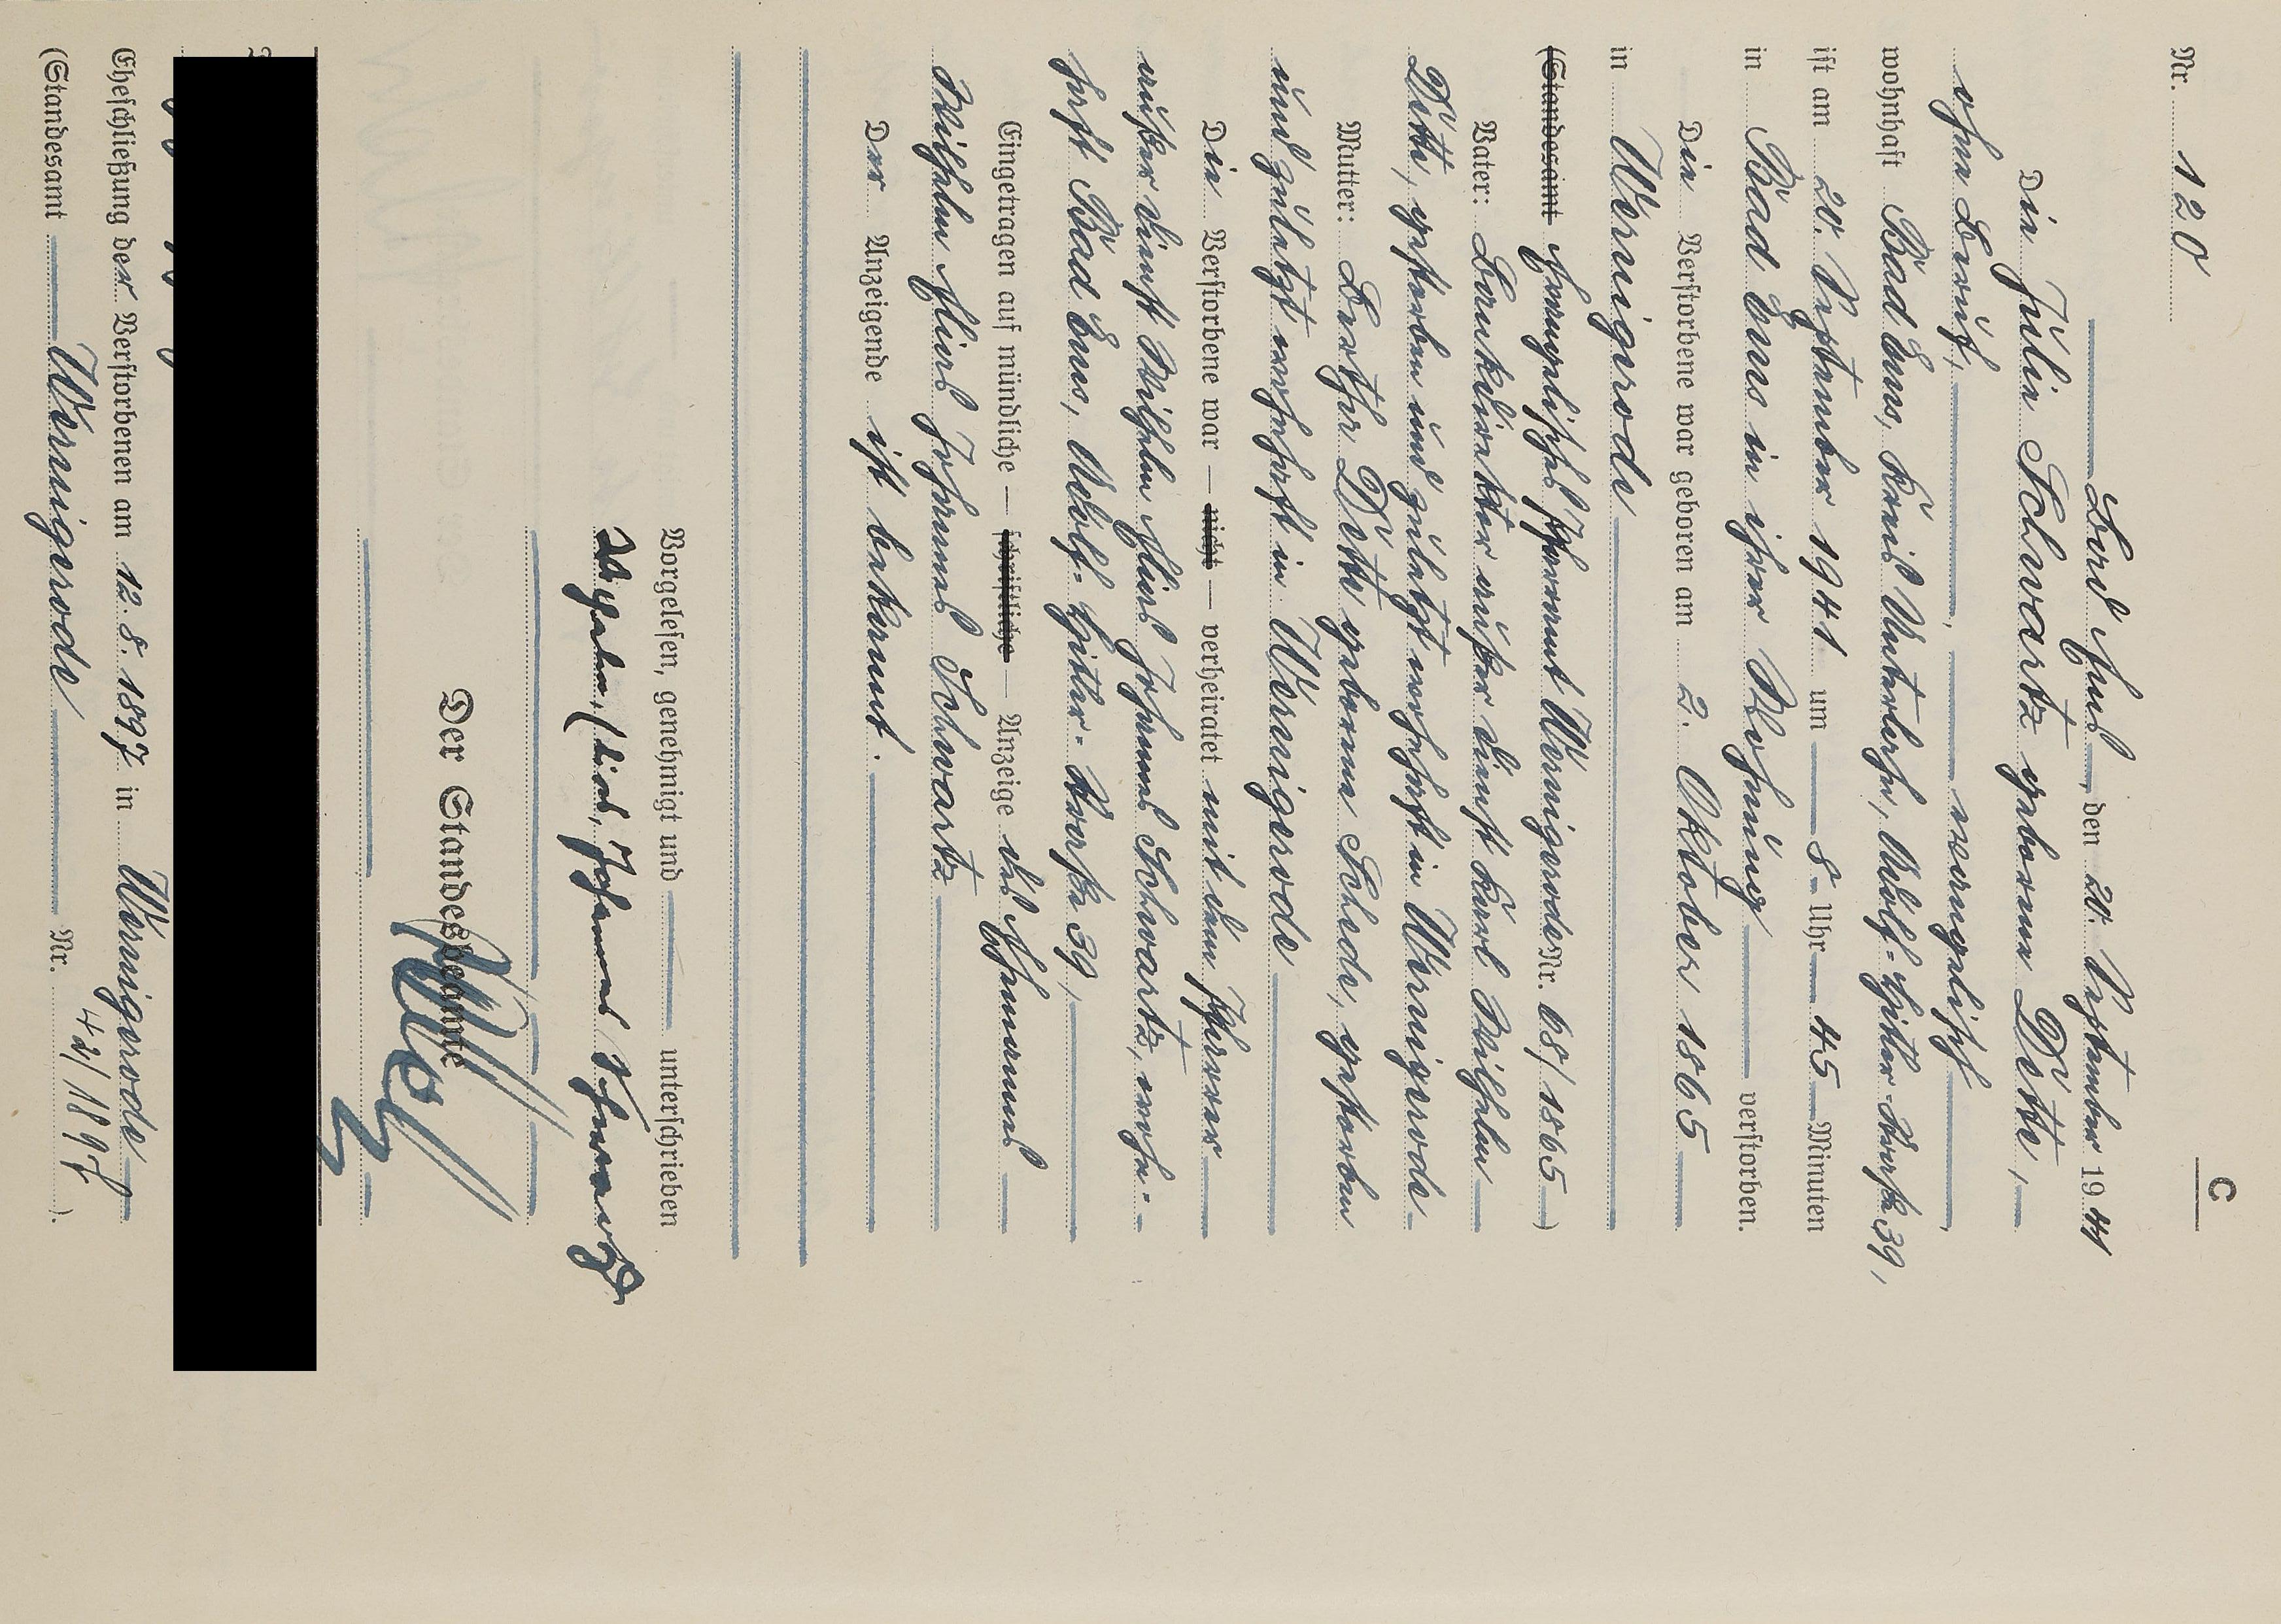 C
Nr. 120
Bad Ems, den 20. September 1941
Die Julie Schwartz geborene Dette,
ohne Beruf, evangelisch
wohnhaft Bad Ems, Kreis Unterlahn, Adolf-Hitler-Straße 39,
ist am 20. September 1941 um 8 Uhr 45 Minuten
in Bad Ems in ihrer Wohnung verstorben.
Die Verstorbene war geboren am 2. Oktober 1865
in Wernigerode
(Standesamt evangelisches Pfarramt Wernigerode Nr. 68/1865)
Vater: Bankdirektor außer Dienst Karl Wilhelm
Dette, gestorben und zuletzt wohnhaft in Wernigerode
Mutter: Bertha Dette geborene Schede, gestorben
und zuletzt wohnhaft in Wernigerode
Die Verstorbene war — nicht — verheiratet mit dem Pfarrer
außer Dienst Wilhelm Elias Johannes Schwartz, wohn-
haft Bad Ems, Adolf-Hitler-Straße 39,
Eingetragen auf mündliche — schriftliche — Anzeige des Ehemannes
Wilhelm Elias Johannes Schwartz
Der Anzeigende ist bekannt.
Vorgelesen, genehmigt und unterschrieben
Wilhelm, Elias, Johannes Schwartz
Der Standesbeamte
Eheschließung der Verstorbenen am 12. 8. 1897 in Wernigerode
(Standesamt Wernigerode Nr. 42/1897).